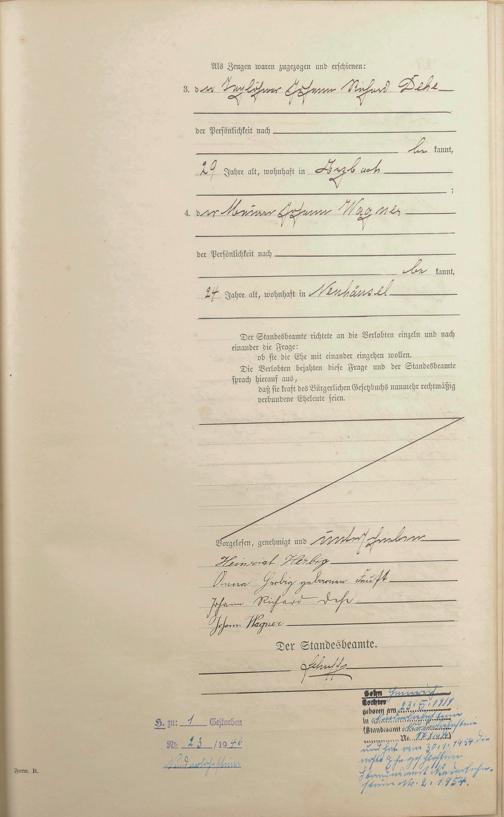 Als Zeugen waren zugezogen und erschienen:
3. der Taglöhner Johann Richard Dehe
der Persönlichkeit nach
be kannt,
29 Jahre alt, wohnhaft in Arzbach
;
4. der Maurer Johann Wagner
der Persönlichkeit nach
be kannt,
24 Jahre alt, wohnhaft in Neuhäusel
Der Standesbeamte richtete an die Verlobten einzeln und nach
einander die Frage:
ob sie die Ehe mit einander eingehen wollen.
Die Verlobten bejahten diese Frage und der Standesbeamte
sprach hierauf aus,
daß sie kraft des Bürgerlichen Gesetzbuchs nunmehr rechtmäßig
verbundene Eheleute seien.
Vorgelesen, genehmigt und unterschrieben
Heinrich Herbig
Anna Herbig geborenen Faust
Johann Richard Dehe
Johann Wagner
Der Standesbeamte.
H. zu: 1 Gestorben
Nr. 23 /1940
Niederlahnstein
Sohn Heinrich
Tochter
geboren am 23. 1911
in Niederlahnstein
(Standesamt Niederlahnstein
Nr.
und hat am 30.1.1954 die
Standesamt Niederlahn-
stein Nr. 2. 1954.
Form. B.